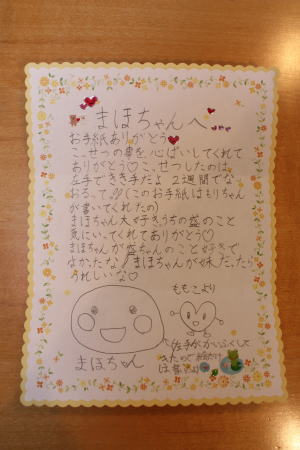 まほちゃんへ
お手紙ありがとう
こっせつの事を心ぱいしてくれて
ありがとう♡こっせつしたのは
左手できき手だよ 2週間でな
おるって!!(このお手紙はもりちゃん
が書いてくれたの)
まほちゃん大好きうちの盛のこと
気にいってくれてありがとう♡
まほちゃんが盛ちゃんのこと好きで
よかったな♪まほちゃんが妹だったら
うれしいな♡
ももこより
まほちゃん
左手がかいふくして
きたので絵だけ
は